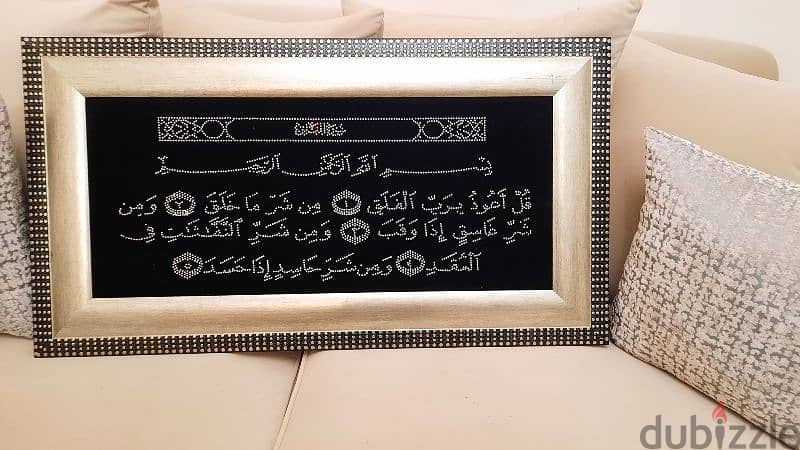 سورة الفلق
بسم الله الرحمن الرحيم
قُلْ أَعُوذُ بِرَبِّ الْفَلَقِ ١ مِن شَرِّ مَا خَلَقَ ٢ وَمِن
شَرِّ غَاسِقٍ إِذَا وَقَبَ ٣ وَمِن شَرِّ النَّفَّٰثَٰتِ فِي
الْعُقَدِ ٤ وَمِن شَرِّ حَاسِدٍ إِذَا حَسَدَ ٥
dubizzle